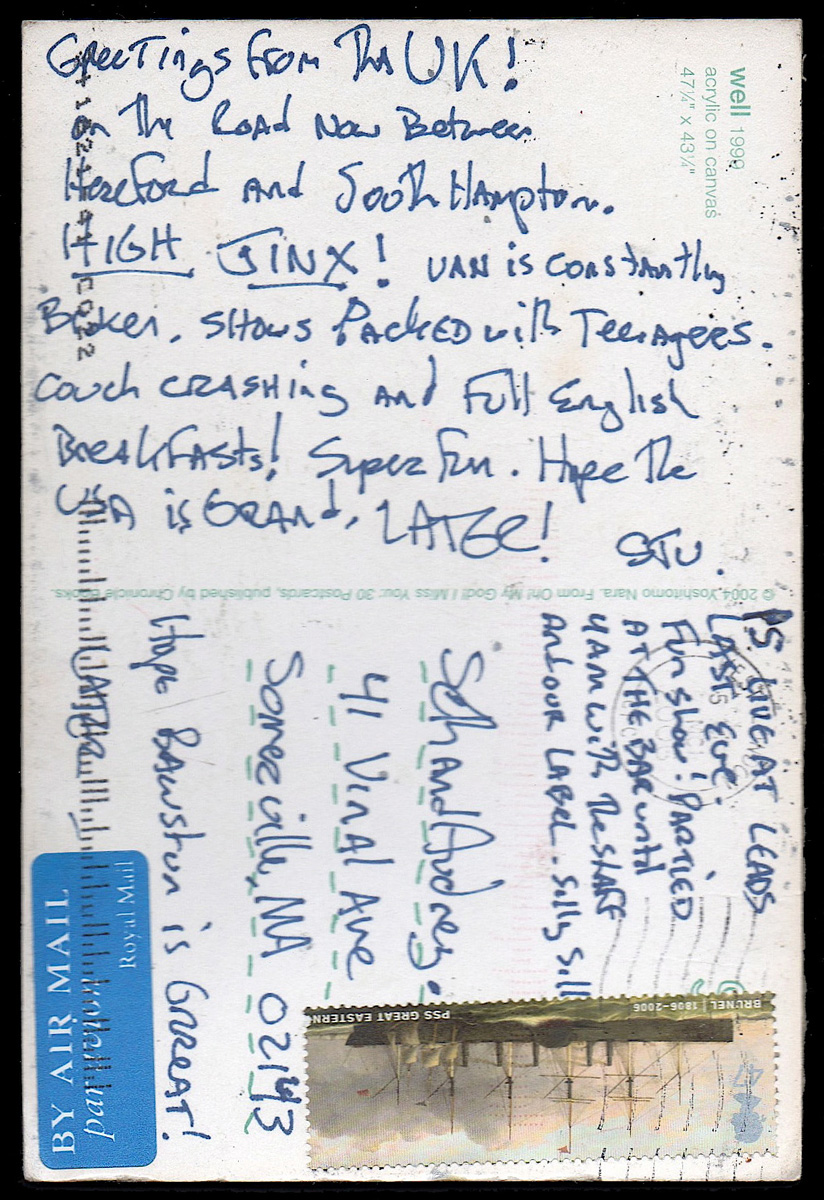 Greetings from Tha UK!
on The Road Now Between
Hereford and SouthHampton.
HIGH JINX! VAN is constantly
Broken. Shows Packed with Teenagers.
couch crashing and Full English
Breakfasts! Super Fun. Hope The
USA is Grand. LATER!
STU.
well 1999
acrylic on canvas
47¼" x 43¼"
© 2004 Yoshitomo Nara. From Oh! My God! I Miss You: 30 Postcards, published by Chronicle Books.
PS. LIVE AT LEADS
LAST EVE.
Fun show! PARTIED
AT THE BAR until
4AM with The STAFF
AND OUR LABEL. Silly Sill
Seth and Audrey.
41 Vinal Ave
Somerville, MA 02143
Hope BAWSTon is Grreat!
BRUNEL | 1806-2006
PSS GREAT EASTERN
BY AIR MAIL
par avion
Royal Mail